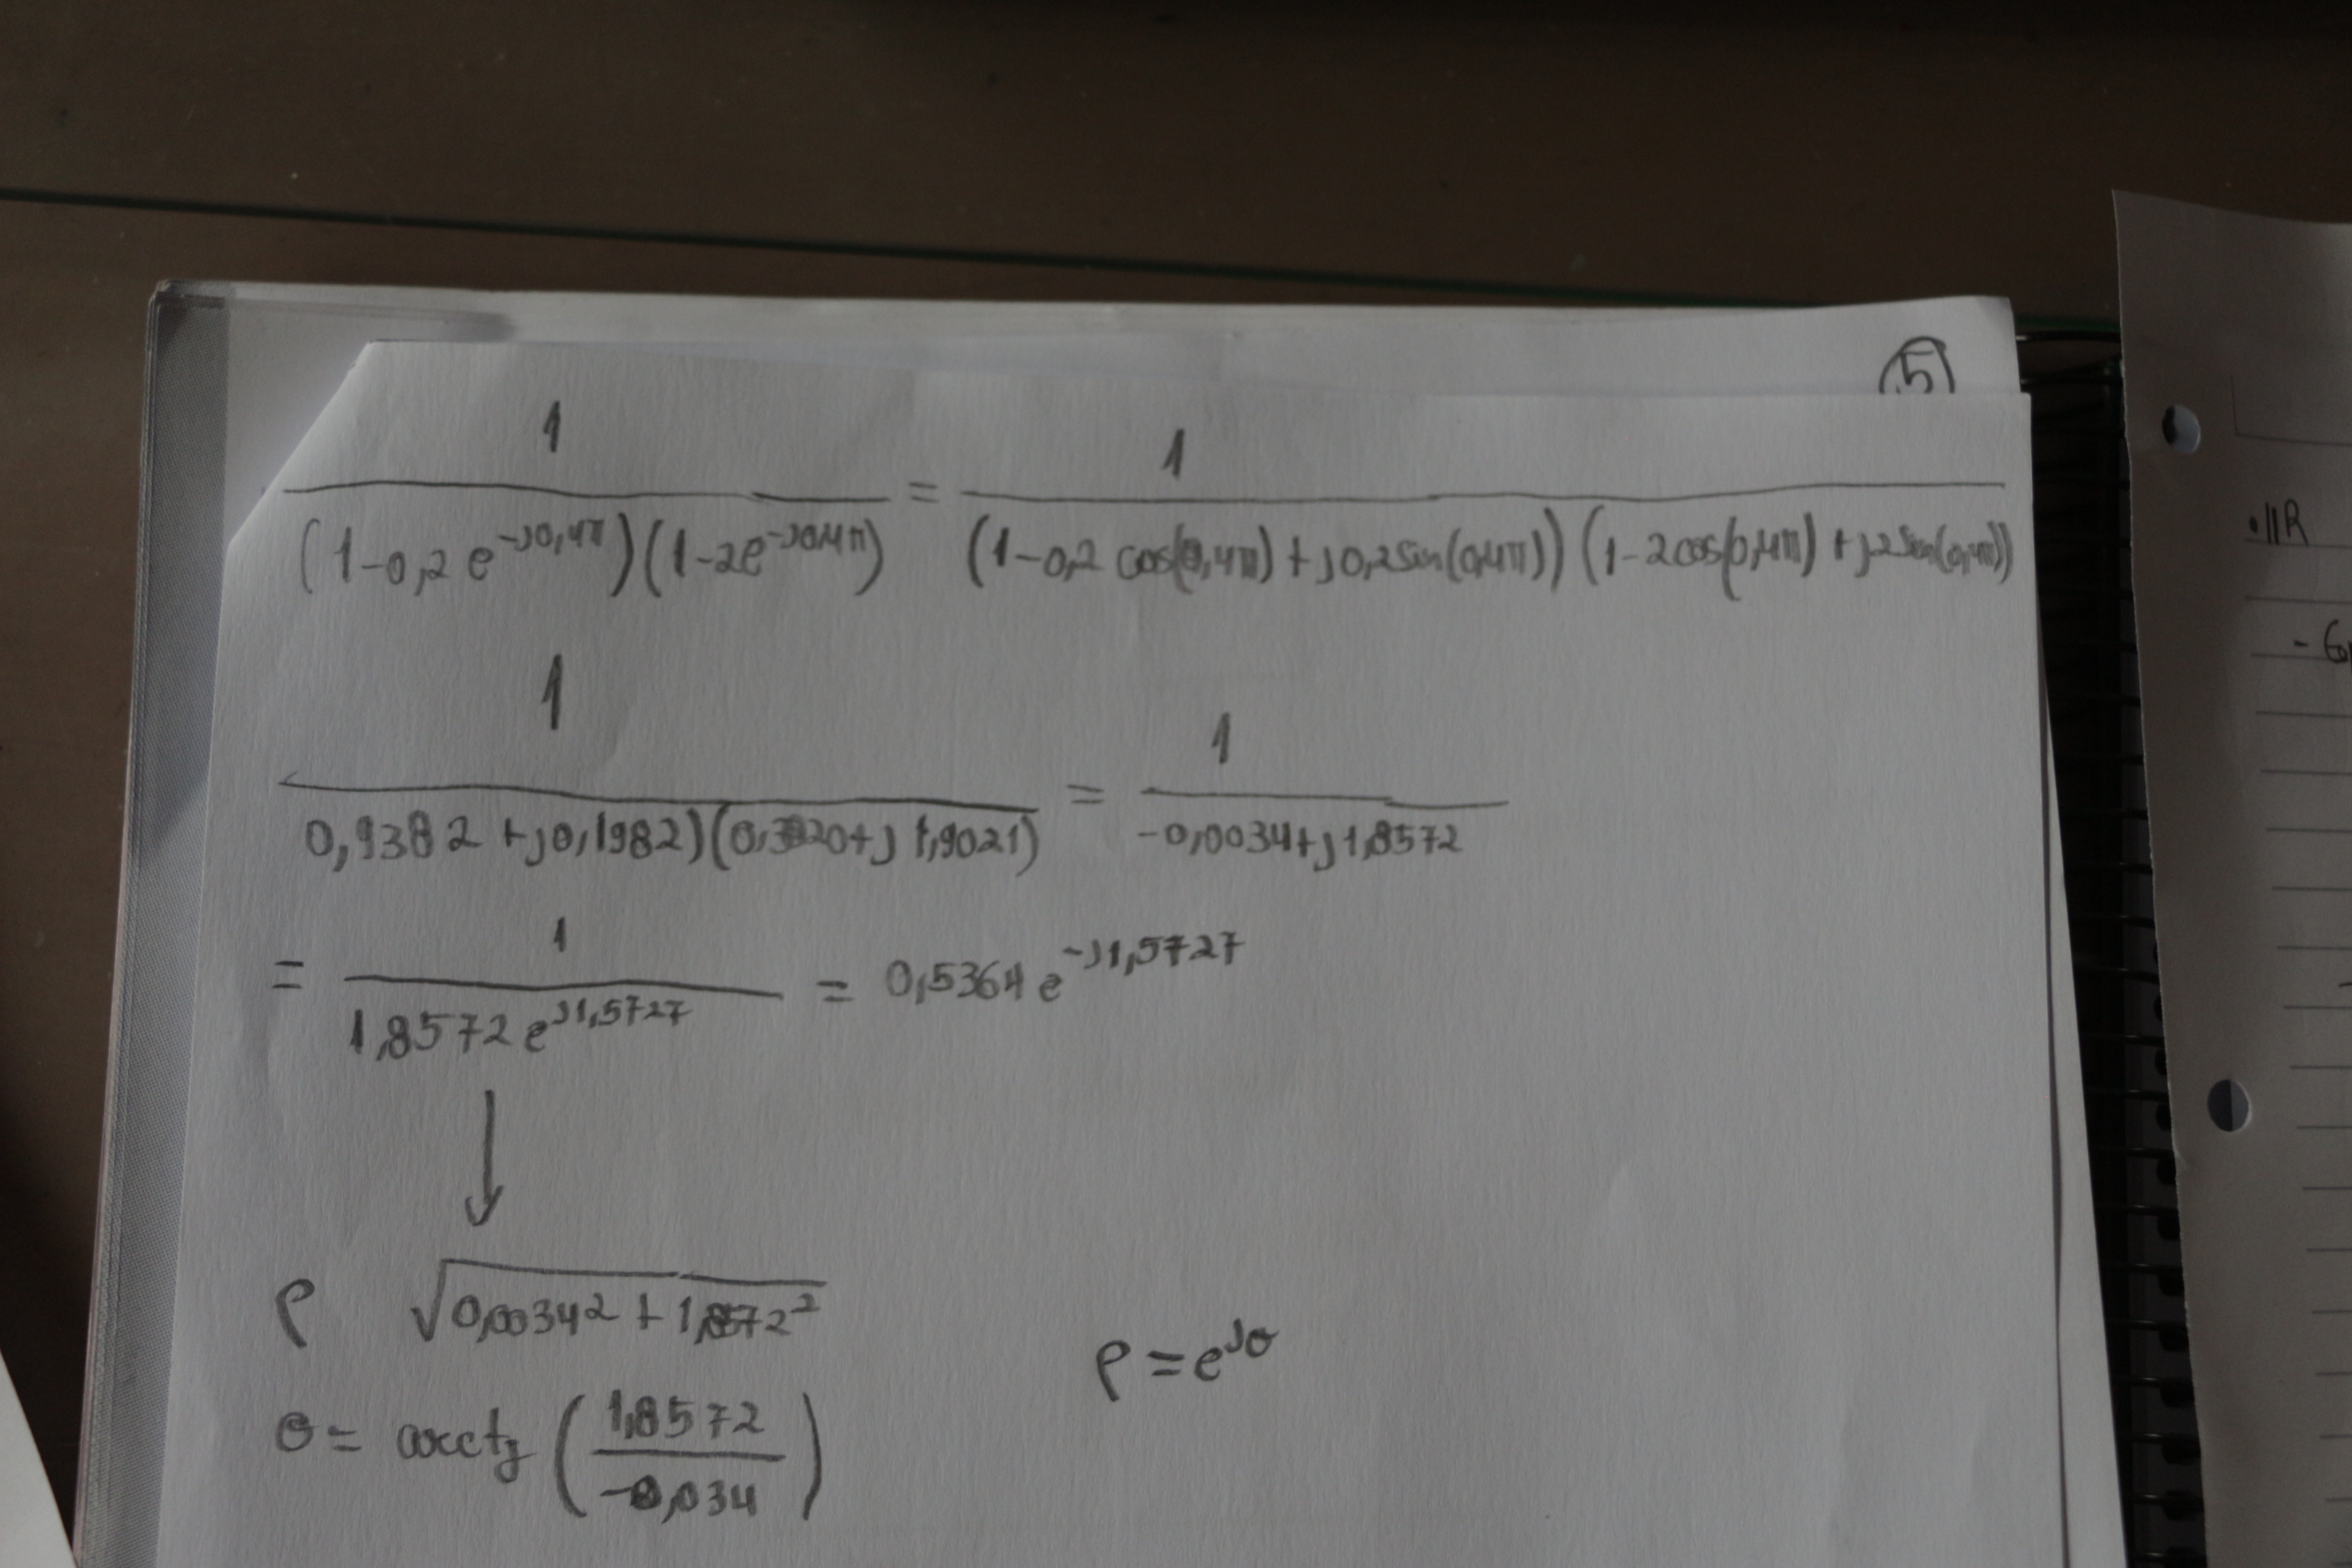 5
1 / (1-0,2 e^{-j0,4π})(1-2e^{-j0,4π}) = 1 / (1-0,2 cos(0,4π) + j0,2sin(0,4π)) (1-2cos(0,4π) + j2sin(0,4π))
1 / 0,9382 + j0,1982)(0,3820+j1,9021) = 1 / -0,0034+j1,8572
= 1 / 1,8572 e^{j1,5727} = 0,5364 e^{-j1,5727}
↓
ρ √(0,0034² + 1,8572²)
ρ = e^{jσ}
θ = arctg (1,8572 / -0,034)
IIR